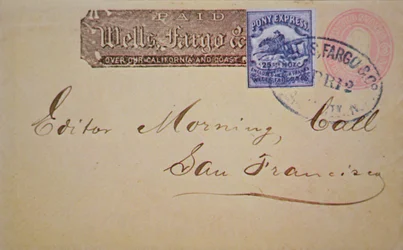 PAID
Wells, Fargo &
OVER OUR CALIFORNIA AND COAST
PONY EXPRESS
FARGO & CO
12
Editor Morning, Call
San Francisco